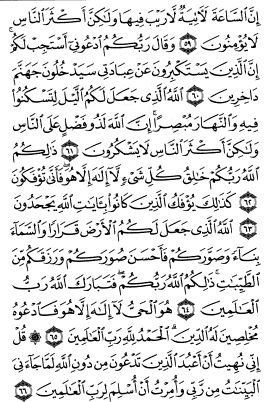 إِنَّ السَّاعَةَ لَآتِيَةٌ لَّا رَيْبَ فِيهَا وَلَٰكِنَّ أَكْثَرَ النَّاسِ
لَا يُؤْمِنُونَ ٥٩ وَقَالَ رَبُّكُمُ ادْعُونِي أَسْتَجِبْ لَكُمْ
إِنَّ الَّذِينَ يَسْتَكْبِرُونَ عَنْ عِبَادَتِي سَيَدْخُلُونَ جَهَنَّمَ
دَاخِرِينَ ٦٠ اللَّهُ الَّذِي جَعَلَ لَكُمُ اللَّيْلَ لِتَسْكُنُوا
فِيهِ وَالنَّهَارَ مُبْصِرًا إِنَّ اللَّهَ لَذُو فَضْلٍ عَلَى النَّاسِ
وَلَٰكِنَّ أَكْثَرَ النَّاسِ لَا يَشْكُرُونَ ٦١ ذَٰلِكُمُ
اللَّهُ رَبُّكُمْ خَالِقُ كُلِّ شَيْءٍ لَّا إِلَٰهَ إِلَّا هُوَ فَأَنَّىٰ تُؤْفَكُونَ
٦٢ كَذَٰلِكَ يُؤْفَكُ الَّذِينَ كَانُوا بِآيَاتِ اللَّهِ يَجْحَدُونَ
٦٣ اللَّهُ الَّذِي جَعَلَ لَكُمُ الْأَرْضَ قَرَارًا وَالسَّمَاءَ
بِنَاءً وَصَوَّرَكُمْ فَأَحْسَنَ صُوَرَكُمْ وَرَزَقَكُم مِّنَ
الطَّيِّبَاتِ ذَٰلِكُمُ اللَّهُ رَبُّكُمْ فَتَبَارَكَ اللَّهُ رَبُّ
الْعَالَمِينَ ٦٤ هُوَ الْحَيُّ لَا إِلَٰهَ إِلَّا هُوَ فَادْعُوهُ
مُخْلِصِينَ لَهُ الدِّينَ الْحَمْدُ لِلَّهِ رَبِّ الْعَالَمِينَ ٦٥ ۞ قُلْ
إِنِّي نُهِيتُ أَنْ أَعْبُدَ الَّذِينَ تَدْعُونَ مِن دُونِ اللَّهِ لَمَّا جَاءَنِيَ
الْبَيِّنَاتُ مِن رَّبِّي وَأُمِرْتُ أَنْ أُسْلِمَ لِرَبِّ الْعَالَمِينَ ٦٦